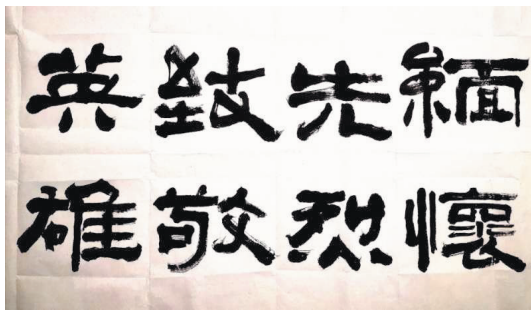 緬懷
先烈
致敬
英雄